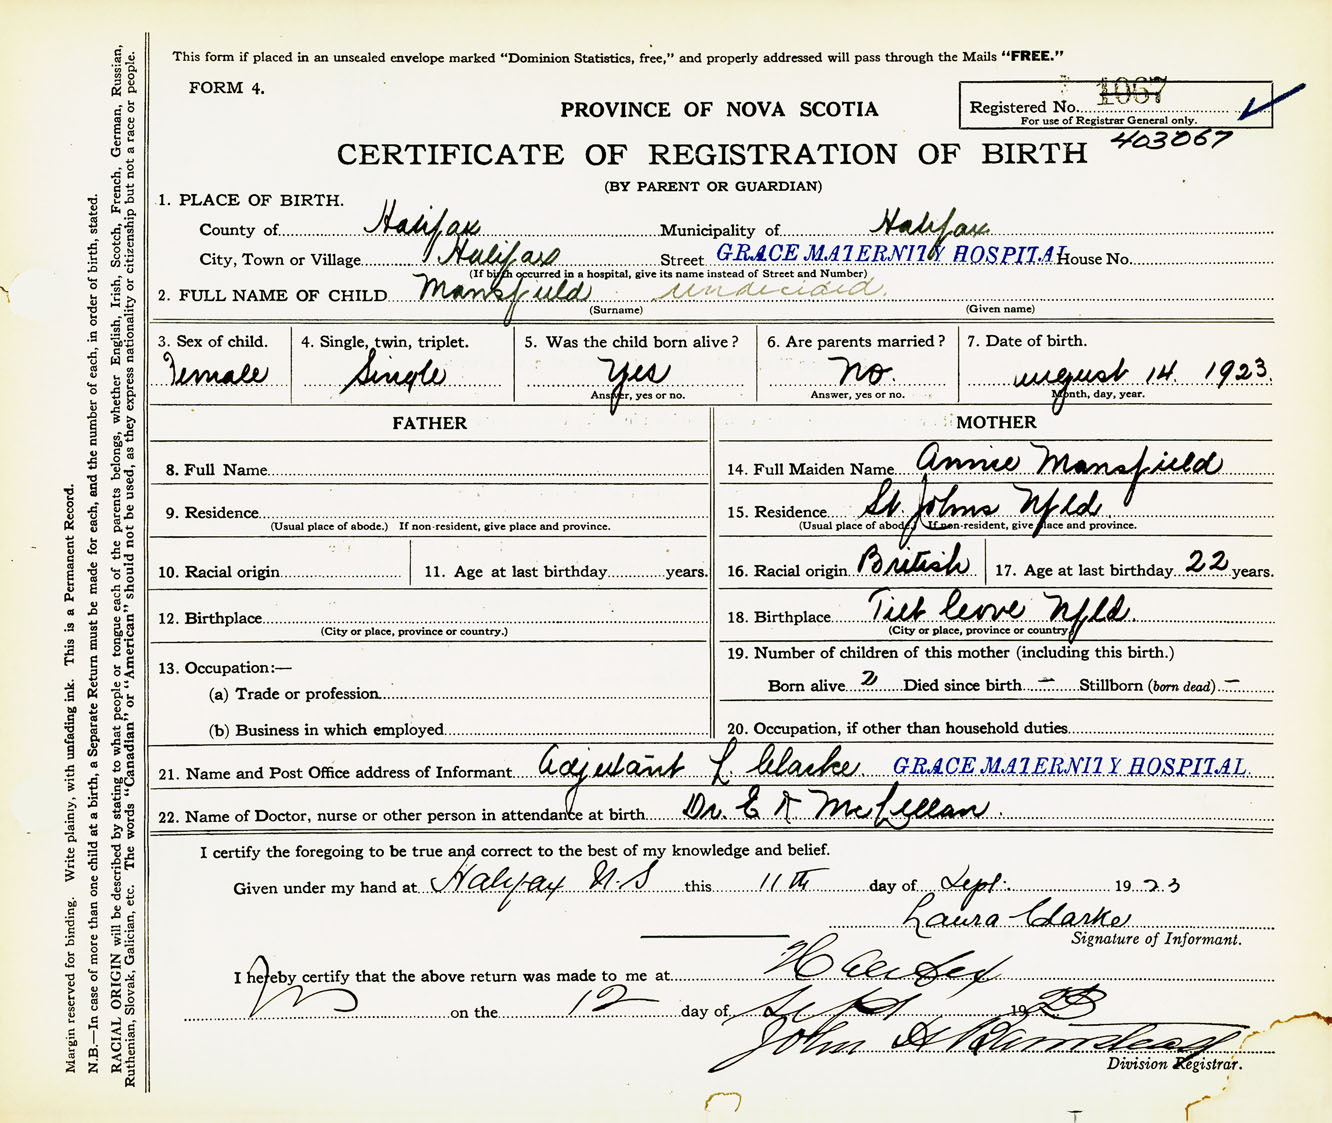 This form if placed in an unsealed envelope marked "Dominion Statistics, free," and properly addressed will pass through the Mails "FREE."
FORM 4.
PROVINCE OF NOVA SCOTIA
Registered No. 1067
For use of Registrar General only.
403067
CERTIFICATE OF REGISTRATION OF BIRTH
(BY PARENT OR GUARDIAN)
1. PLACE OF BIRTH.
County of Halifax Municipality of Halifax
City, Town or Village Halifax Street GRACE MATERNITY HOSPITAL House No.
(If birth occurred in a hospital, give its name instead of Street and Number)
2. FULL NAME OF CHILD Mansfield undecided.
(Surname) (Given name)
3. Sex of child. Female
4. Single, twin, triplet. Single
5. Was the child born alive? Yes
Answer, yes or no.
6. Are parents married? No.
Answer, yes or no.
7. Date of birth. august 14 1923.
Month, day, year.
FATHER
8. Full Name
9. Residence
(Usual place of abode.) If non-resident, give place and province.
10. Racial origin 11. Age at last birthday years.
12. Birthplace
(City or place, province or country.)
13. Occupation:—
(a) Trade or profession
(b) Business in which employed
MOTHER
14. Full Maiden Name Annie Mansfield
15. Residence St. Johns Nfld
(Usual place of abode.) If non-resident, give place and province.
16. Racial origin British 17. Age at last birthday 22 years.
18. Birthplace Tilt Cove Nfld.
(City or place, province or country)
19. Number of children of this mother (including this birth.)
Born alive 2 Died since birth — Stillborn (born dead) —
20. Occupation, if other than household duties
21. Name and Post Office address of Informant Adjutant L. Clarke. GRACE MATERNITY HOSPITAL.
22. Name of Doctor, nurse or other person in attendance at birth Dr. E K McLellan.
I certify the foregoing to be true and correct to the best of my knowledge and belief.
Given under my hand at Halifax N.S this 11th day of Sept. 1923
Laura Clarke
Signature of Informant.
I hereby certify that the above return was made to me at Halifax
on the 12 day of Sept 1923
John A
Division Registrar.
Margin reserved for binding. Write plainly, with unfading ink. This is a Permanent Record.
N.B.—In case of more than one child at a birth, a Separate Return must be made for each, and the number of each, in order of birth, stated.
RACIAL ORIGIN will be described by stating to what people or tongue each of the parents belongs, whether English, Irish, Scotch, French, German, Russian,
Ruthenian, Slovak, Galician, etc. The words "Canadian" or "American" should not be used, as they express nationality or citizenship but not a race or people.